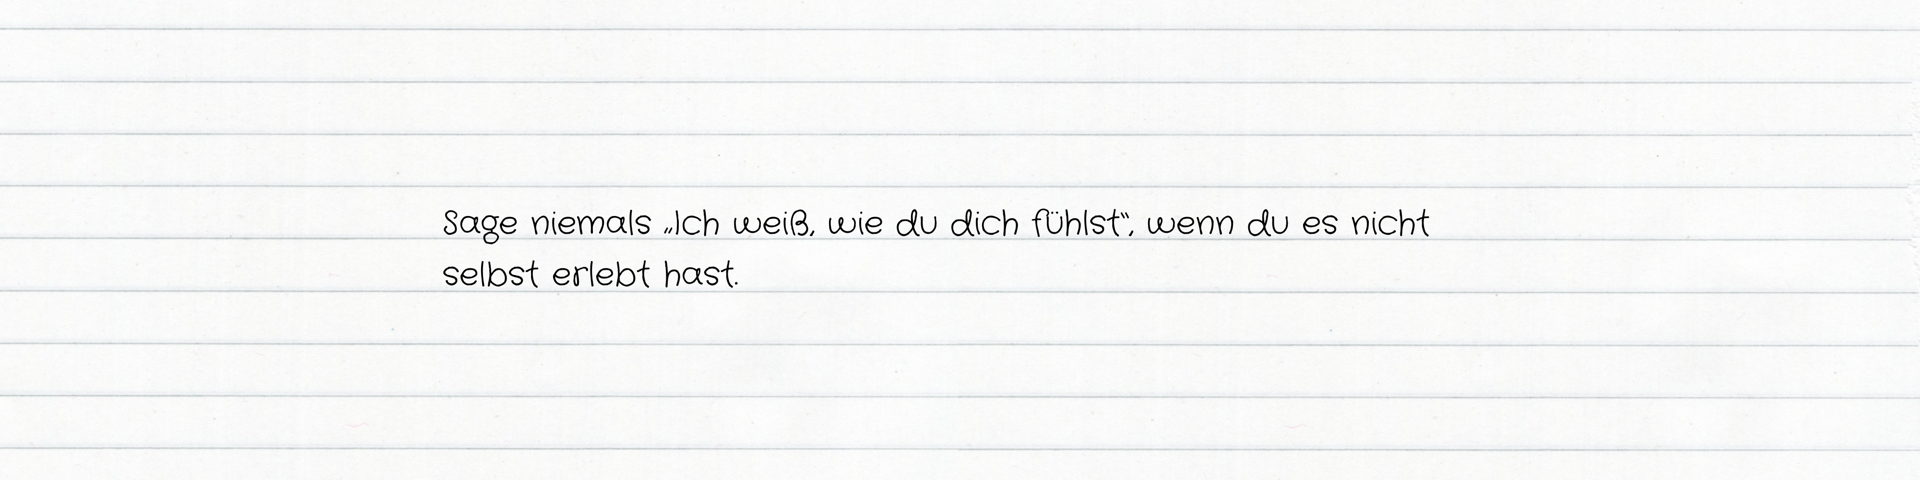 Sage niemals „Ich weiß, wie du dich fühlst“, wenn du es nicht
selbst erlebt hast.